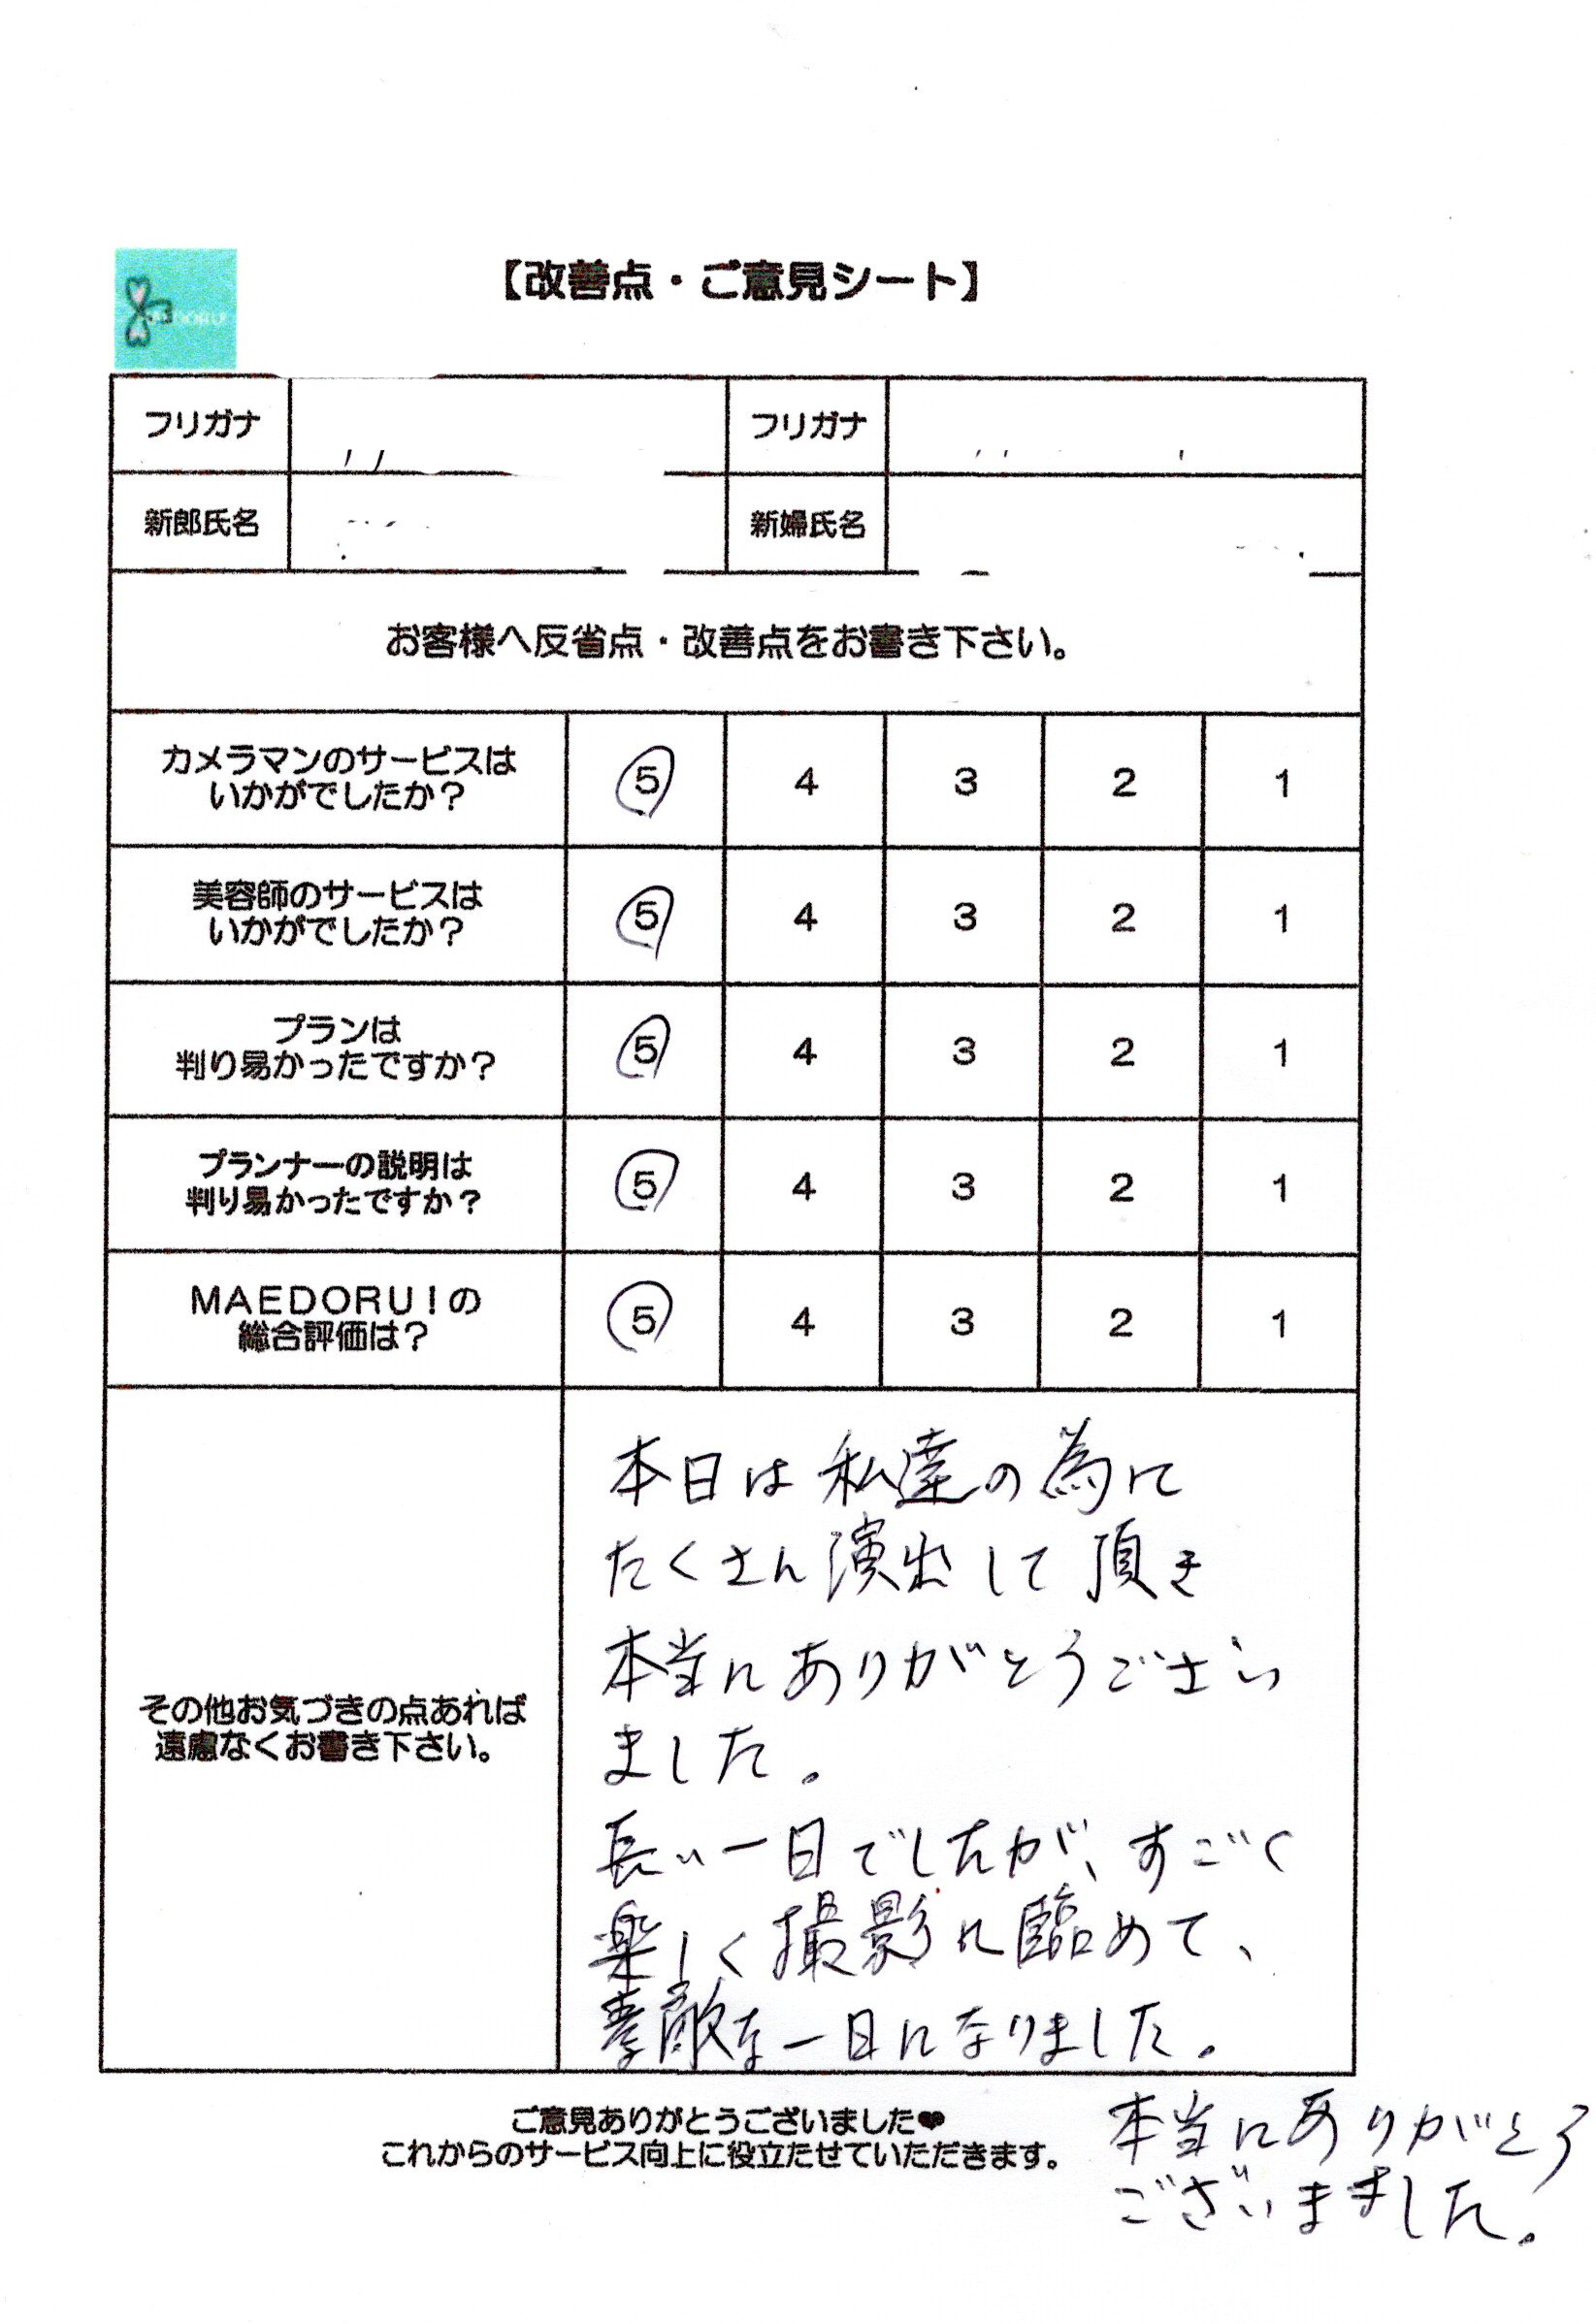 【改善点・ご意見シート】
フリガナ フリガナ
新郎氏名 新婦氏名
お客様へ反省点・改善点をお書き下さい。
カメラマンのサービスは
いかがでしたか？
5 4 3 2 1
美容師のサービスは
いかがでしたか？
5 4 3 2 1
プランは
判り易かったですか？
5 4 3 2 1
プランナーの説明は
判り易かったですか？
5 4 3 2 1
ＭＡＥＤＯＲＵ！の
総合評価は？
5 4 3 2 1
その他お気づきの点あれば
遠慮なくお書き下さい。
本日は私達の為に
たくさん演出して頂き
本当にありがとうございい
ました。
長い一日でしたが、すごく
楽しく撮影に臨めて、
素敵な一日になりました。
本当にありがとう
ございました。
ご意見ありがとうございました❤
これからのサービス向上に役立たせていただきます。